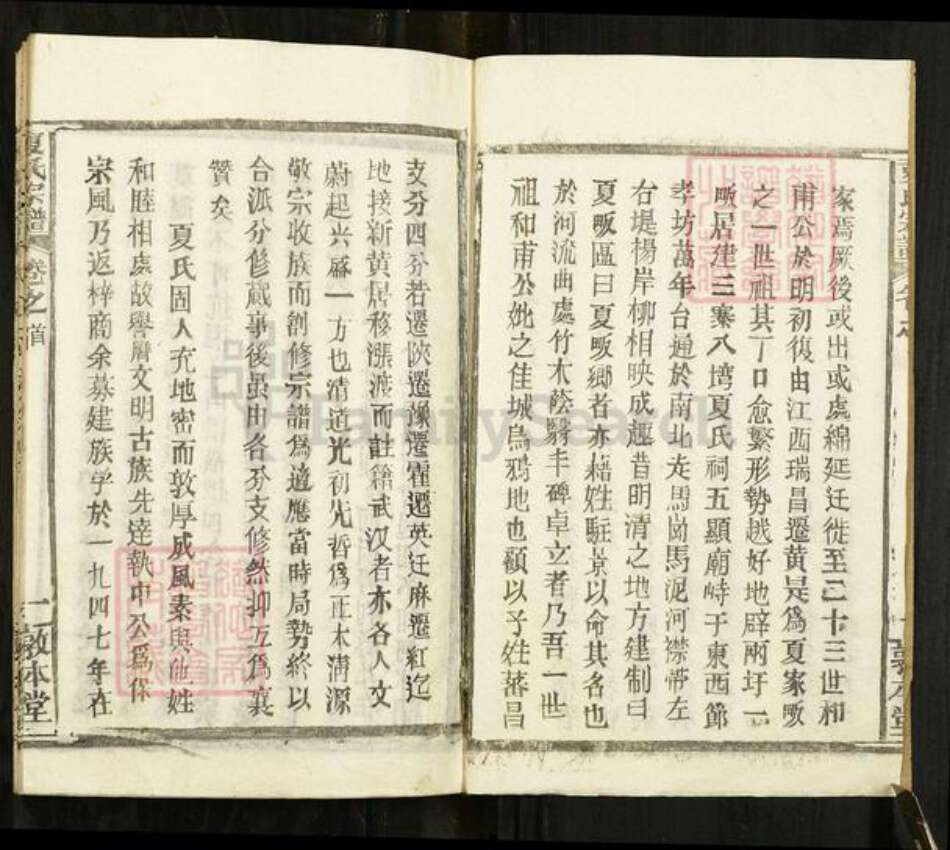 家焉厥後或出或處綿延迁徙至二十三世和
甫公於明初復由江西瑞昌遷黄是爲夏家畈
之一世祖其丁口愈繁形勢越好地辟兩圩一
畈居建三寨八塆夏氏祠五顯廟峙于東西節
孝坊萬年台通於南北走馬崗馬泥河襟帶左
右堤楊岸柳相映成趣昔明清之地方建制曰
夏畈區曰夏畈鄉者亦藉姓駐景以命其名也
於河流曲處竹木蔭翳丰碑卓立者乃吾一世
祖和甫公妣之佳城烏鴉地也顧以子姓蕃昌
支分四分若遷陝遷豫遷霍遷英迁麻遷紅迄
地接新黄居移漲渡而註籍武汉者亦各人文
蔚起兴盛一方也清道光初先哲爲正本清源
敬宗收族而創修宗譜爲適應當時局勢終以
合派分修蕆事後虽由各分支修然抑互爲襄
贊矣
夏氏固人充地密而敦厚成風素與他姓
和睦相處故譽曆文明古族先達執中公爲保
宗風乃返梓商余募建族学於一九四七年在
夏氏宗譜
卷之首
二敦本堂
FamilySearch